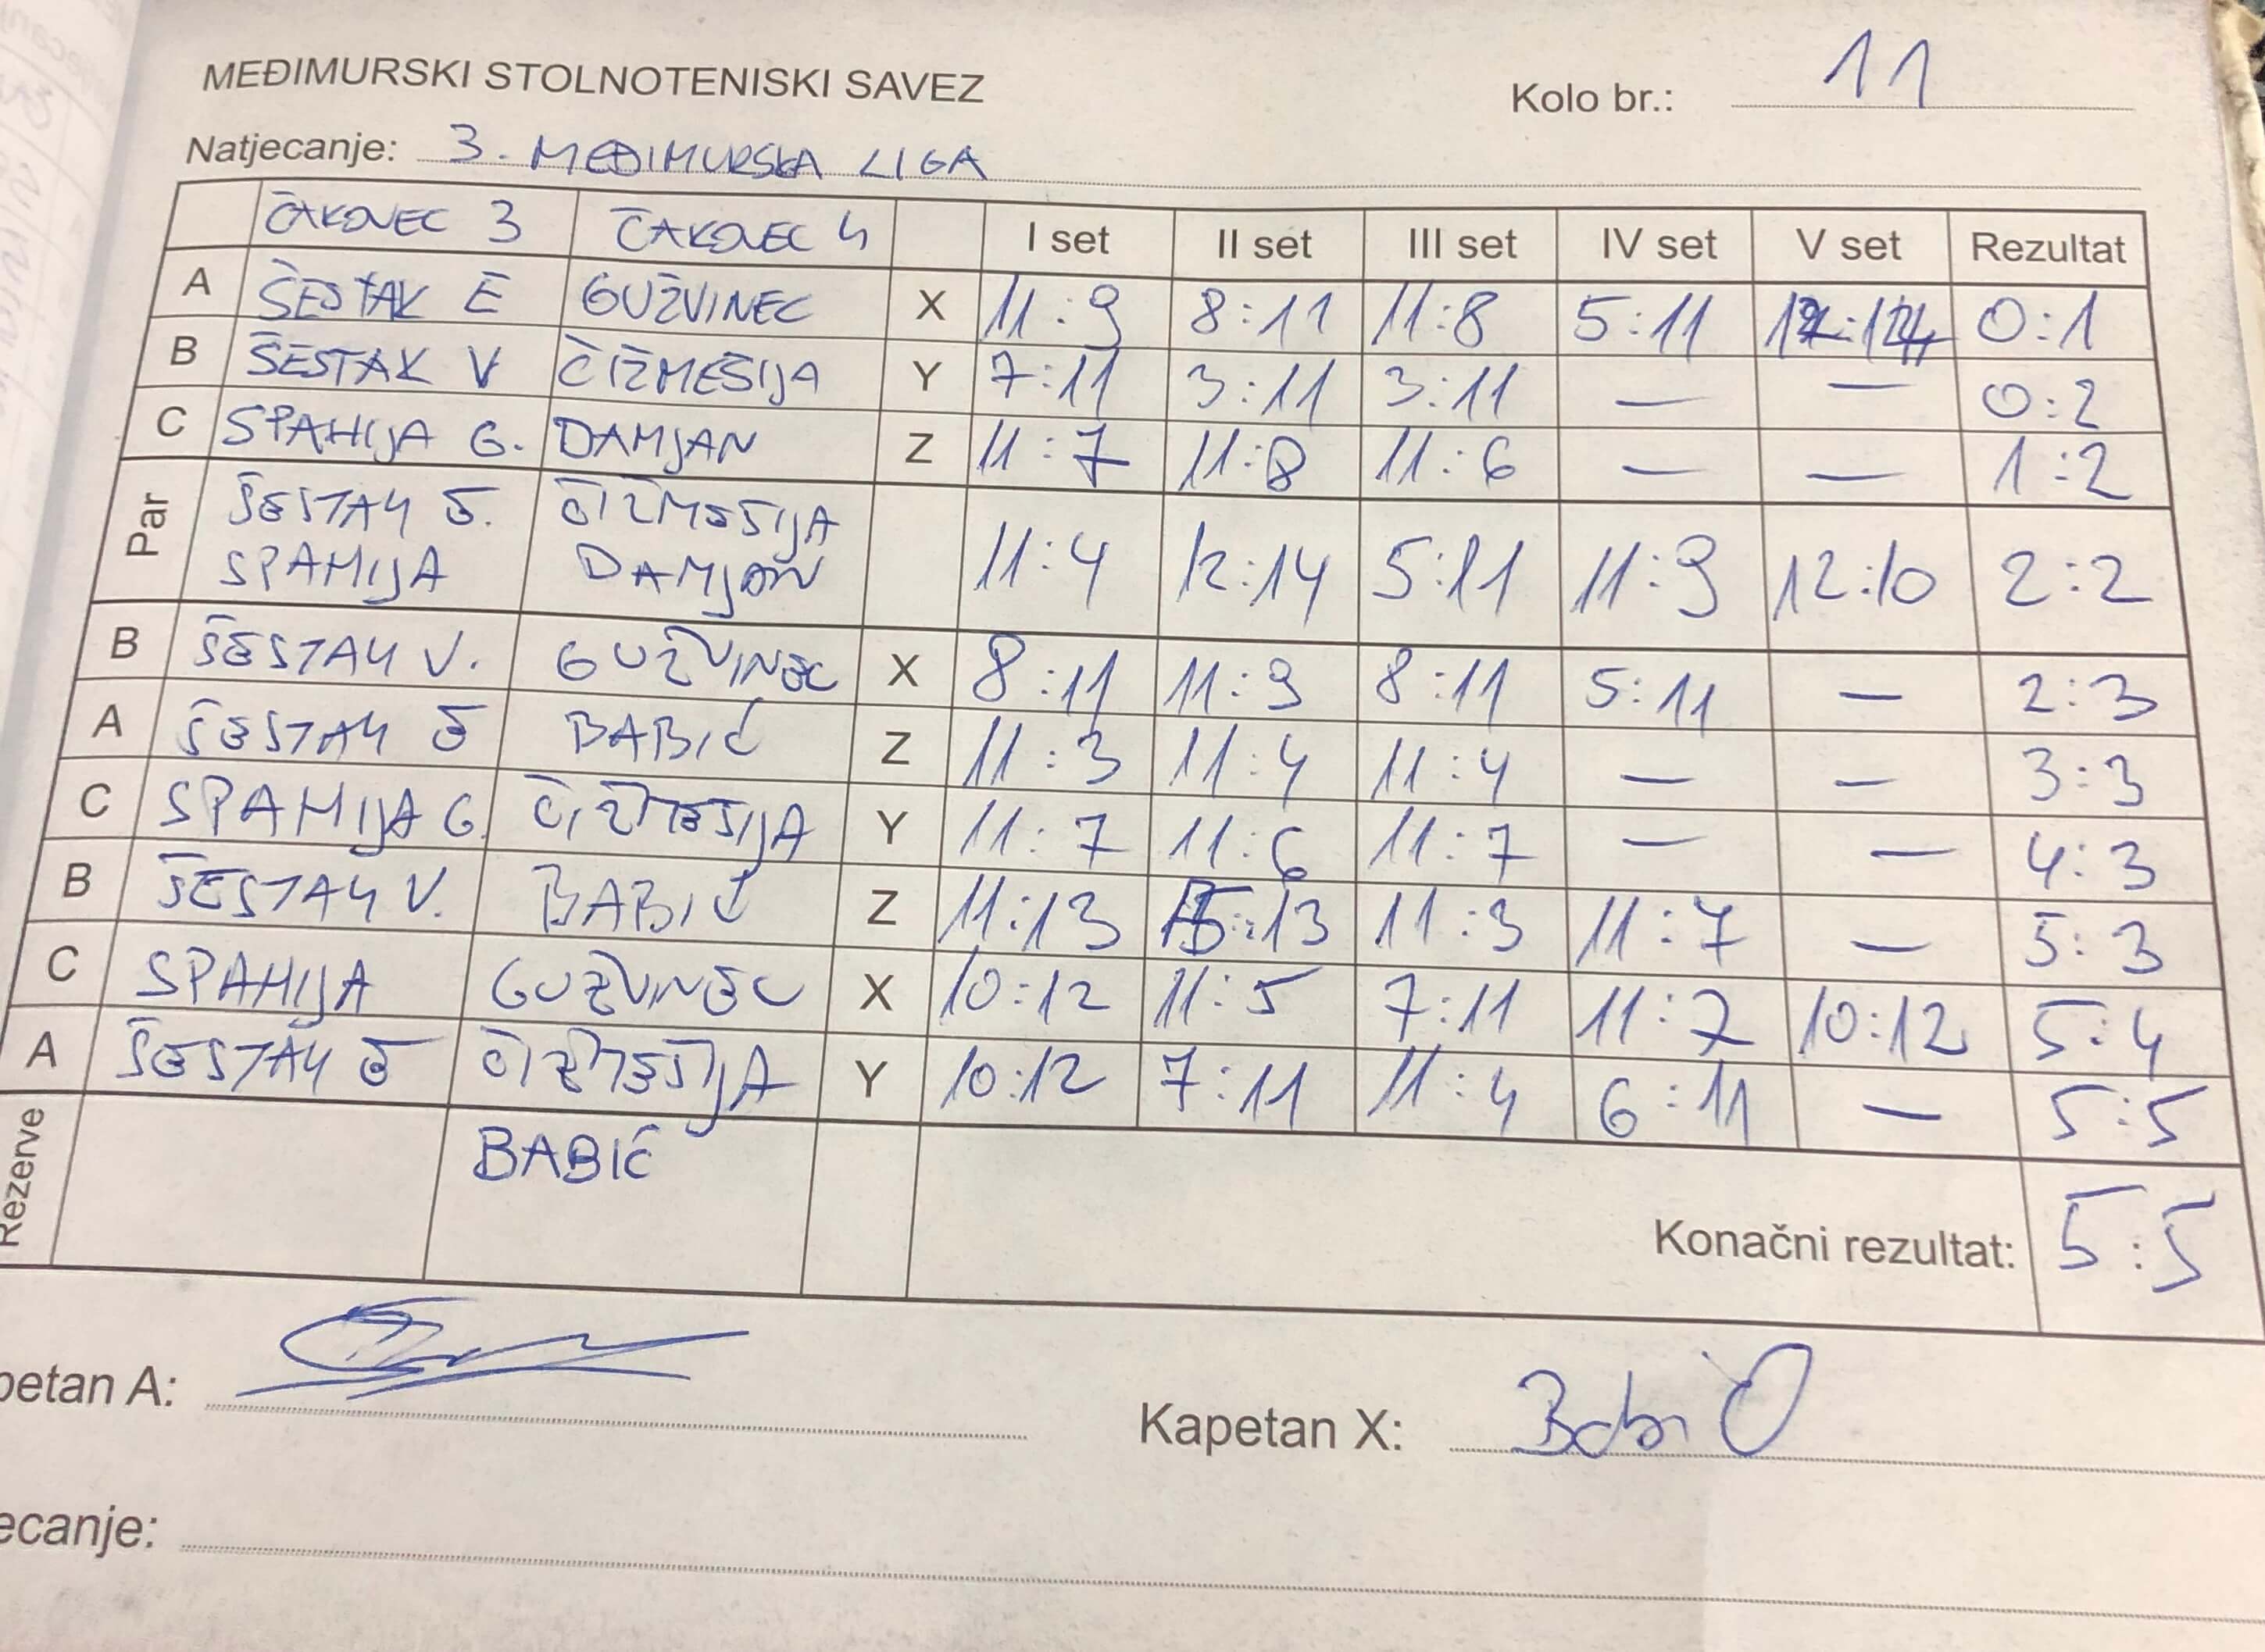 MEĐIMURSKI STOLNOTENISKI SAVEZ
Kolo br.: 11
Natjecanje: 3. MEĐIMURSKA LIGA
ČAKOVEC 3 ČAKOVEC 4 I set II set III set IV set V set Rezultat
A ŠESTAK E GUŽVINEC X 11:9 8:11 11:8 5:11 0:1
B ŠESTAK V ČIŽMEŠIJA Y 7:11 3:11 3:11 — — 0:2
C SPAHIJA G. DAMJAN Z 11:7 11:8 11:6 — — 1:2
Par ŠESTAK E. ČIŽMEŠIJA
SPAHIJA DAMJAN 11:4 12:14 5:11 11:9 12:10 2:2
B ŠESTAK V. GUŽVINEC X 8:11 11:9 8:11 5:11 — 2:3
A ŠESTAK E BABIĆ Z 11:3 11:4 11:4 — — 3:3
C SPAHIJA G. ČIŽMEŠIJA Y 11:7 11:6 11:7 — — 4:3
B ŠESTAK V. BABIĆ Z 11:13 15:13 11:3 11:7 — 5:3
C SPAHIJA GUŽVINEC X 10:12 11:5 7:11 11:7 10:12 5:4
A ŠESTAK E ČIŽMEŠIJA Y 10:12 7:11 11:4 6:11 — 5:5
Rezerve BABIĆ
Konačni rezultat: 5:5
petan A:
Kapetan X: Babić
ecanje: